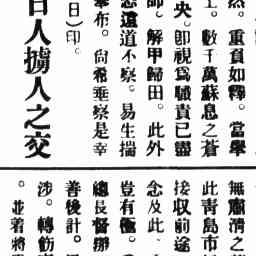 然。重負如釋。當舉
上。數千萬蘇息之蒼
央。卽視爲職責已盡
師。解甲歸田。此外
恐遠道不察。易生揣
布。尙希垂察是幸
日）印。
日人擄人之交
無肅清之
此靑島市
接收前途
念及此。
豈有極。
總長督辦
善後計。
涉。轉飭
。並着將